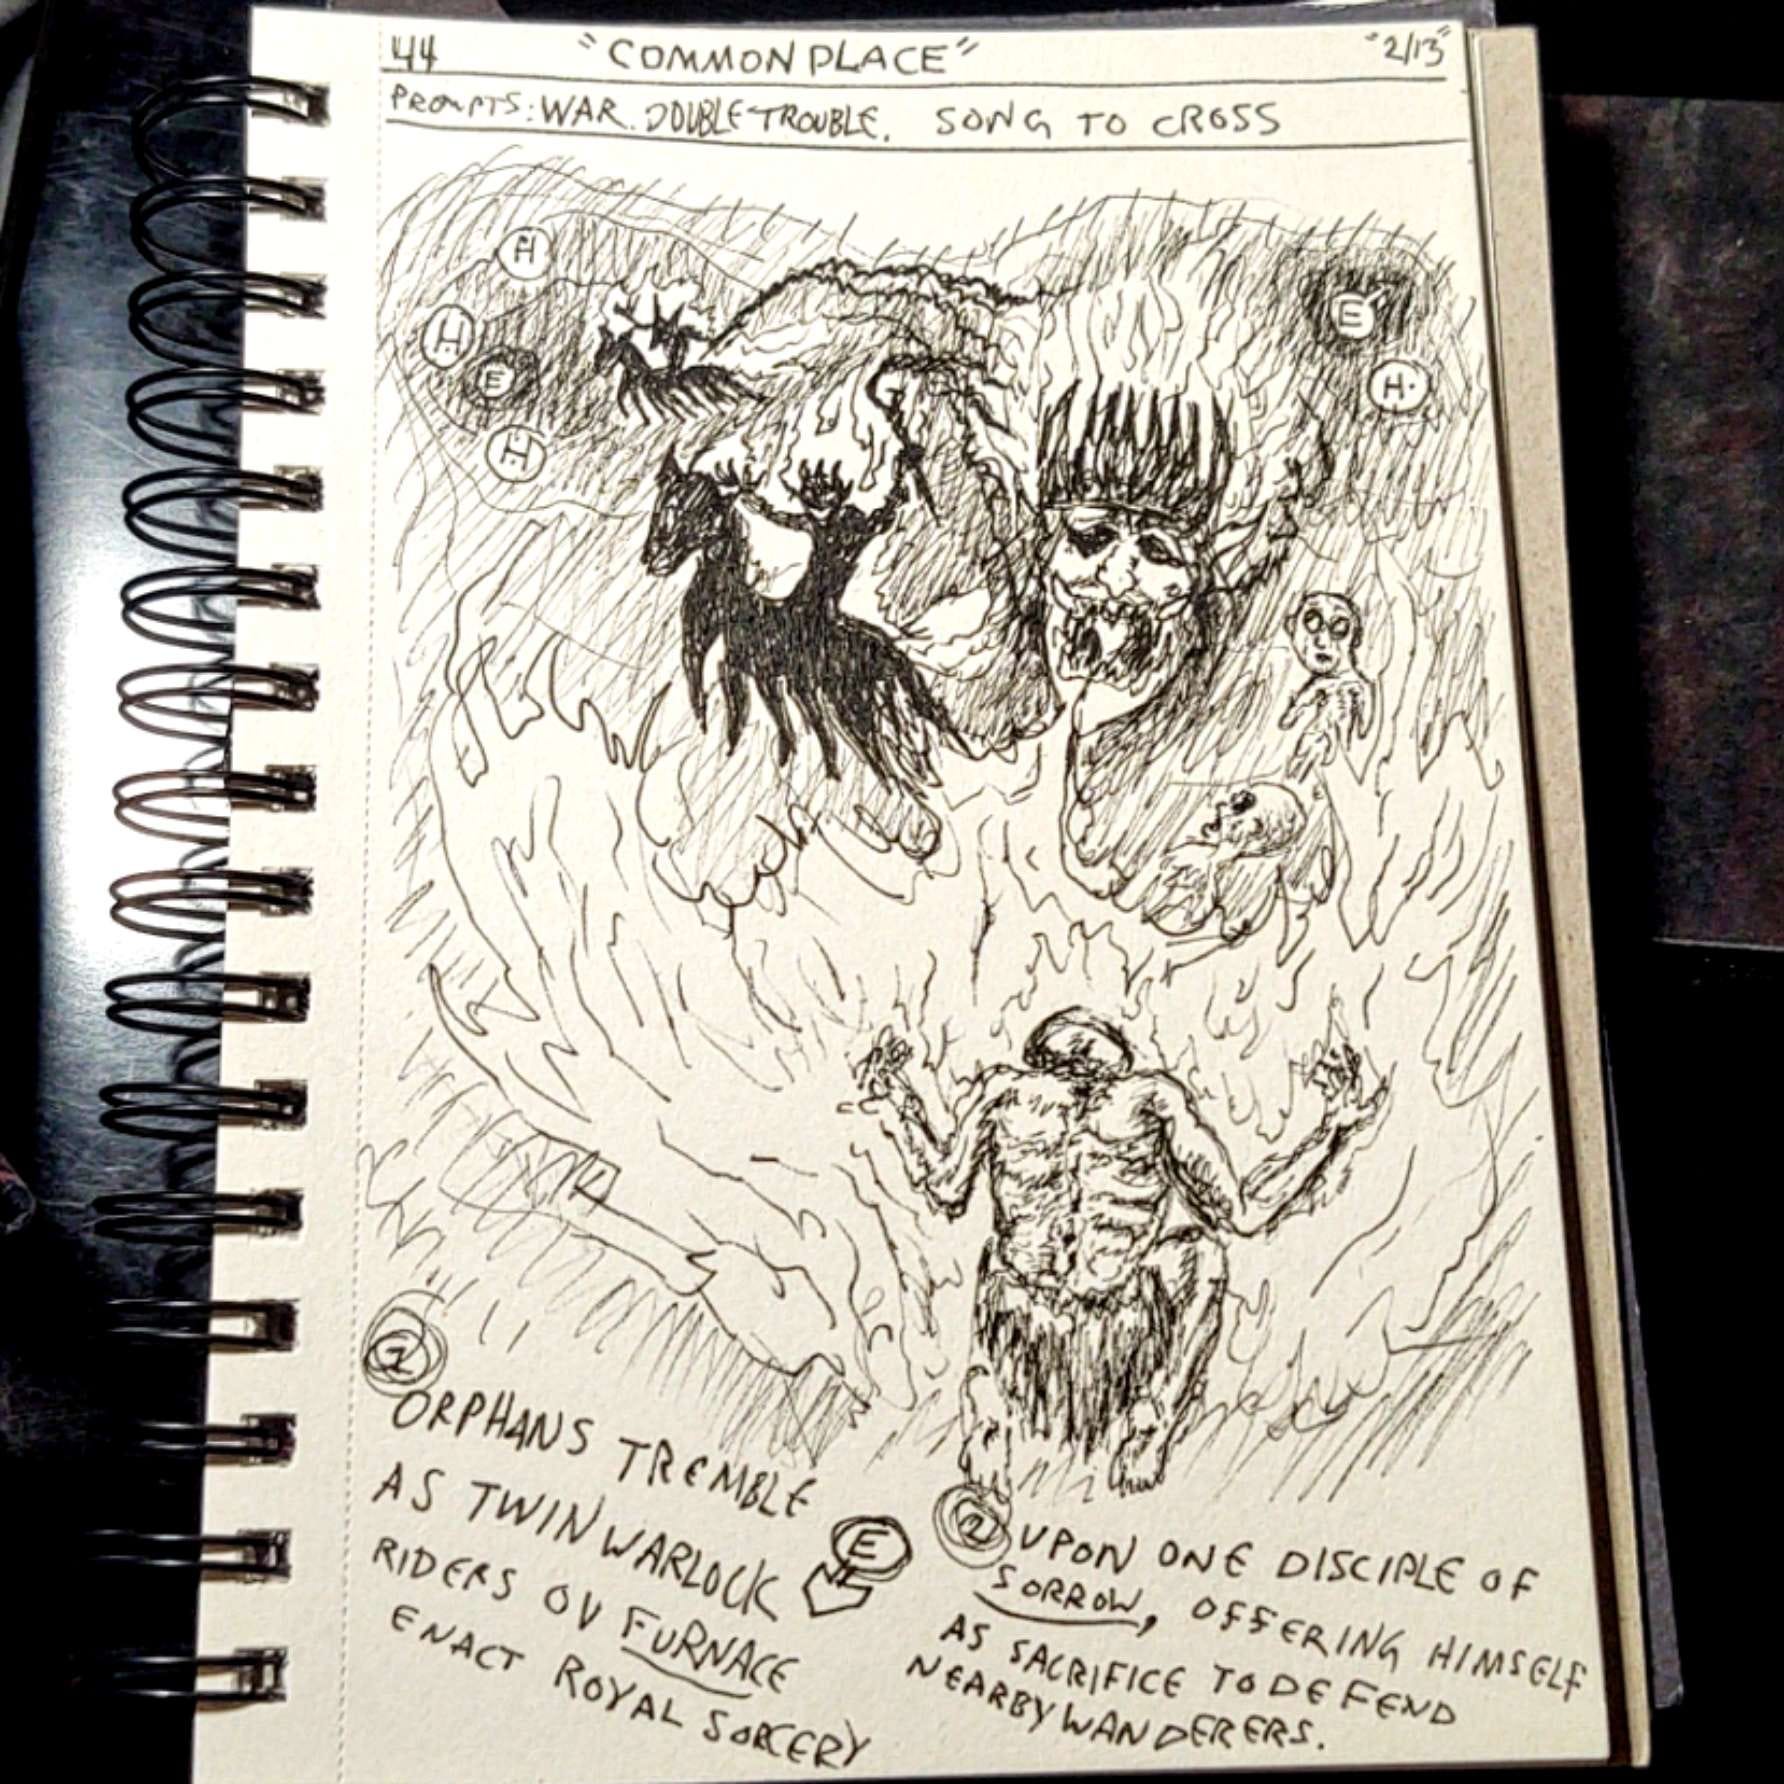 44 "COMMONPLACE" "2/13"
PROMPTS: WAR. DOUBLETROUBLE. SONG TO CROSS
H
H
E
H
S
H
2
ORPHANS TREMBLE
AS TWIN WARLOCK
RIDERS OV FURNACE
ENACT ROYAL SORCERY
E
2 UPON ONE DISCIPLE OF
SORROW, OFFERING HIMSELF
AS SACRIFICE TO DEFEND
NEARBY WANDERERS.